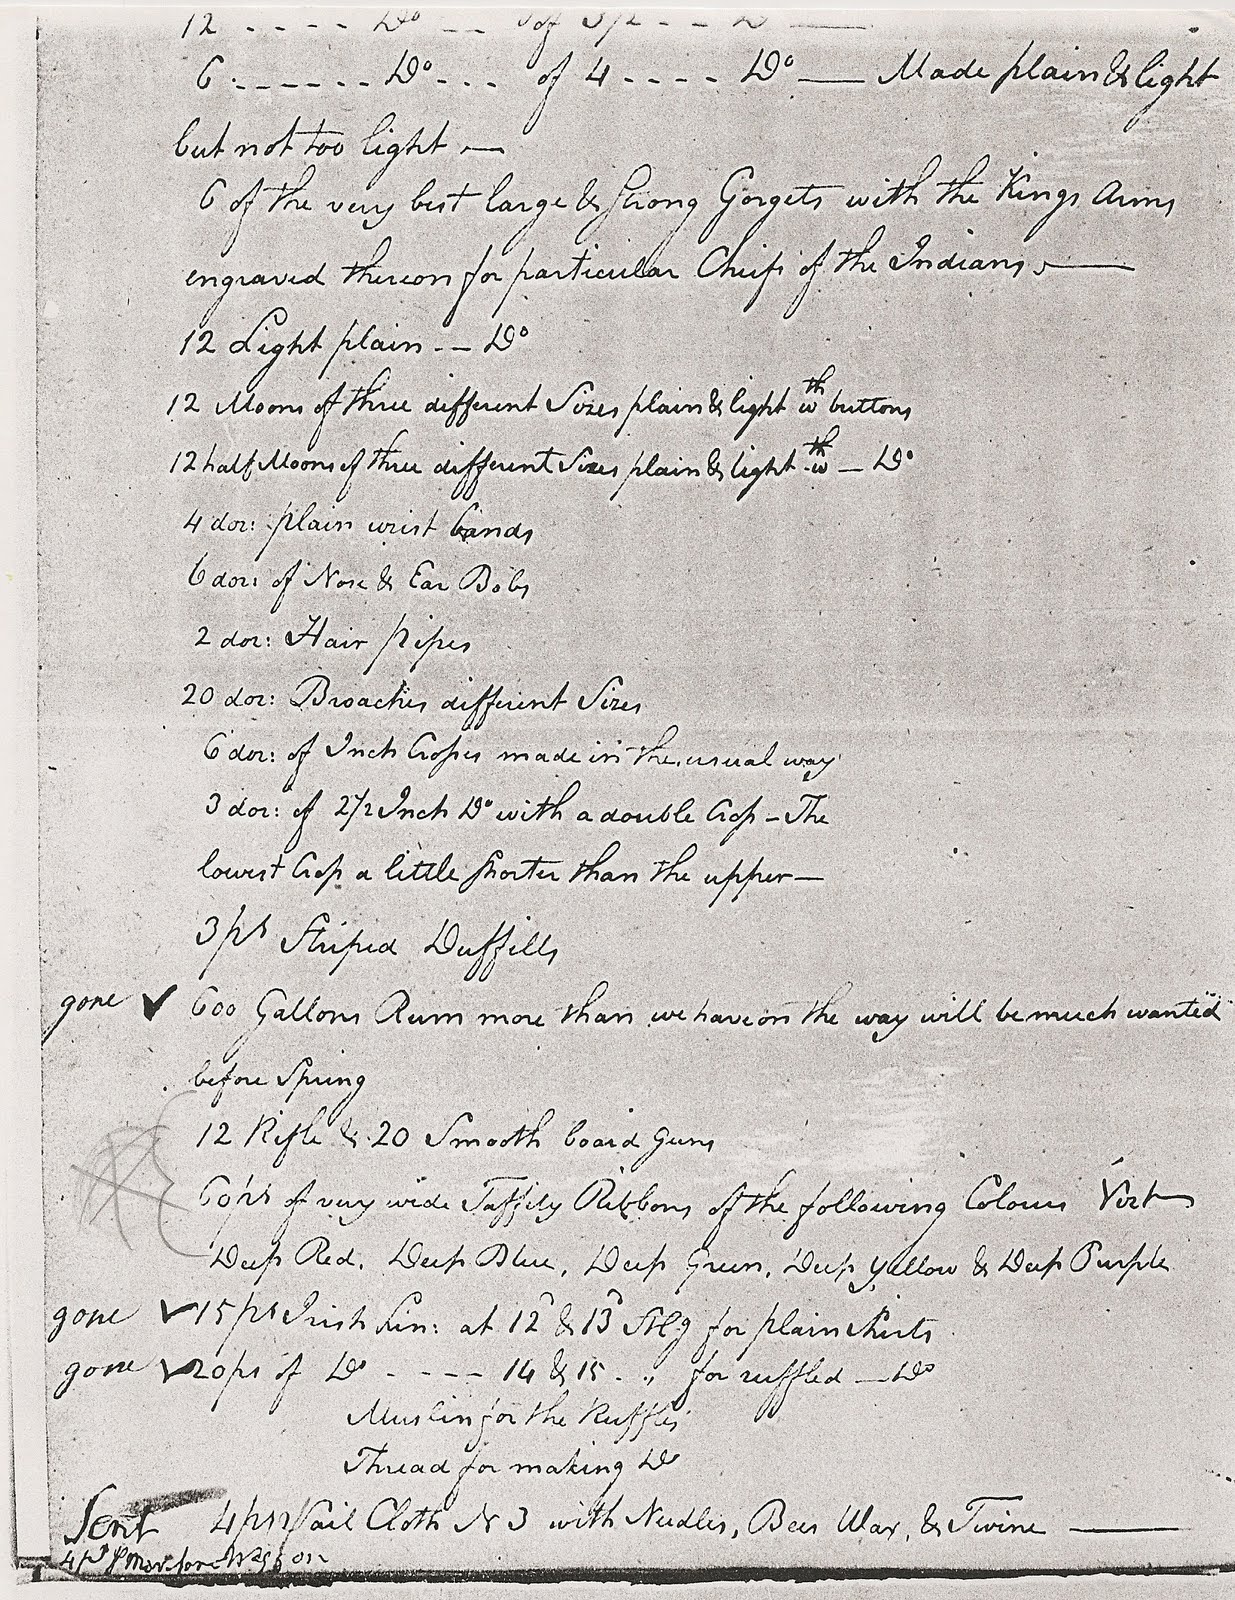 12 - - - - Do - - of 3/2 - - D ——
6 - - - - - - Do - - - of 4 - - - - Do —— Made plain & light
but not too light —
6 of the very best large & strong Gorgets with the Kings Arms
engraved thereon for particular Cheifs of the Indians ——
12 Light plain - - Do
12 Moons of three different Sizes plain & light wth buttons
12 half Moons of three different Sizes plain & light wth — Do
4 doz: plain wrist bands
6 doz: of Nose & Ear Bobs
2 doz: Hair pipes
20 doz: Broaches different Sizes
6 doz: of Inch Crosses made in the usual way
3 doz: of 2 1/2 Inch Do with a double Cross – The
lowest Cross a little shorter than the upper —
3 ps Striped Duffills
gone ✓ 600 Gallons Rum more than we have on the way will be much wanted
before Spring
12 Rifle & 20 Smooth board guns
60 ps of very wide Taffity Ribbons of the following Colours Vizt
Deep Red, Deep Blue, Deep Green, Deep yellow & Deep Purple
gone ✓ 15 ps Irish Lin: at 12d & 13d Stlg for plain shirts
gone ✓ 20 ps of Do - - - - 14 & 15 - " for ruffled — Do
Muslin for the Ruffles
Thread for making Do
Sent 4 ps Sail Cloth No 3 with Needles, Bees Wax, & Twine ——
4 ps